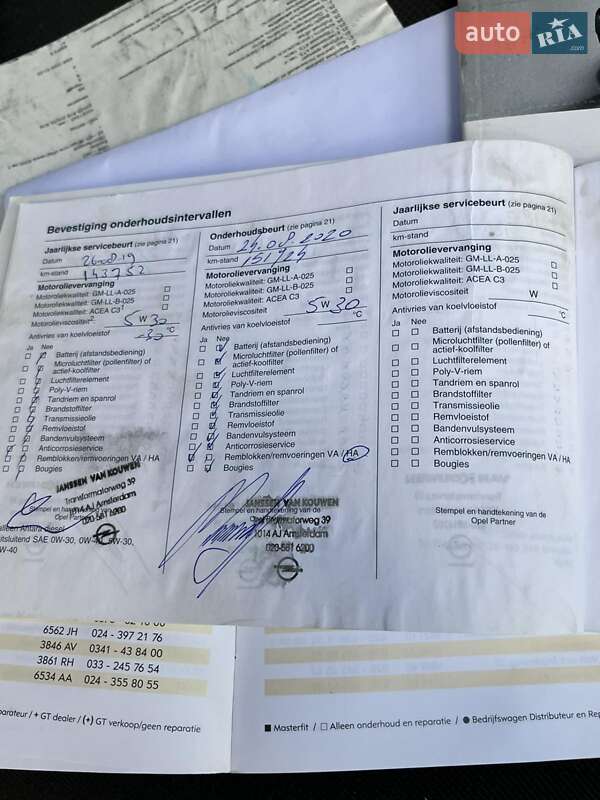 auto RIA.com
Bevestiging onderhoudsintervallen
Jaarlijkse servicebeurt (zie pagina 21)
Datum 26.08.19
km-stand 143752
Motorolievervanging
Motoroliekwaliteit: GM-LL-A-025
Motoroliekwaliteit: GM-LL-B-025
Motoroliekwaliteit: ACEA C3
Motorolieviscositeit 5 W 30
Antivries van koelvloeistof -30 °C
Ja Nee
Batterij (afstandsbediening)
Microluchtfilter (pollenfilter) of
actief-koolfilter
Luchtfilterelement
Poly-V-riem
Tandriem en spanrol
Brandstoffilter
Transmissieolie
Remvloeistof
Bandenvulsysteem
Anticorrosieservice
Remblokken/remvoeringen VA / HA
Bougies
JANSSEN VAN KOUWEN
Transformatorweg 39
1014 AJ Amsterdam
020-581 6200
Opel Partner
Antara diesel
SAE 0W-30, 0W-40, 5W-30,
W-40
Onderhoudsbeurt (zie pagina 21)
Datum 25.08.2020
km-stand 151725
Motorolievervanging
Motoroliekwaliteit: GM-LL-A-025
Motoroliekwaliteit: GM-LL-B-025
Motoroliekwaliteit: ACEA C3
Motorolieviscositeit 5 W 30
Antivries van koelvloeistof °C
Ja Nee
Batterij (afstandsbediening)
Microluchtfilter (pollenfilter) of
actief-koolfilter
Luchtfilterelement
Poly-V-riem
Tandriem en spanrol
Brandstoffilter
Transmissieolie
Remvloeistof
Bandenvulsysteem
Anticorrosieservice
Remblokken/remvoeringen VA / HA
Bougies
JANSSEN VAN KOUWEN
Stempel en handtekening van de
Transformatorweg 39
1014 AJ Amsterdam
020-581 6200
Jaarlijkse servicebeurt (zie pagina 21)
Datum
km-stand
Motorolievervanging
Motoroliekwaliteit: GM-LL-A-025
Motoroliekwaliteit: GM-LL-B-025
Motoroliekwaliteit: ACEA C3
Motorolieviscositeit W
Antivries van koelvloeistof °C
Ja Nee
Batterij (afstandsbediening)
Microluchtfilter (pollenfilter) of
actief-koolfilter
Luchtfilterelement
Poly-V-riem
Tandriem en spanrol
Brandstoffilter
Transmissieolie
Remvloeistof
Bandenvulsysteem
Anticorrosieservice
Remblokken/remvoeringen VA / HA
Bougies
Stempel en handtekening van de
Opel Partner
6562 JH 024 - 397 21 76
3846 AV 0341 - 43 84 00
3861 RH 033 - 245 76 54
6534 AA 024 - 355 80 55
parateur / + GT dealer / (+) GT verkoop/geen reparatie
■ Masterfit / □ Alleen onderhoud en reparatie / ● Bedrijfswagen Distributeur en Rep